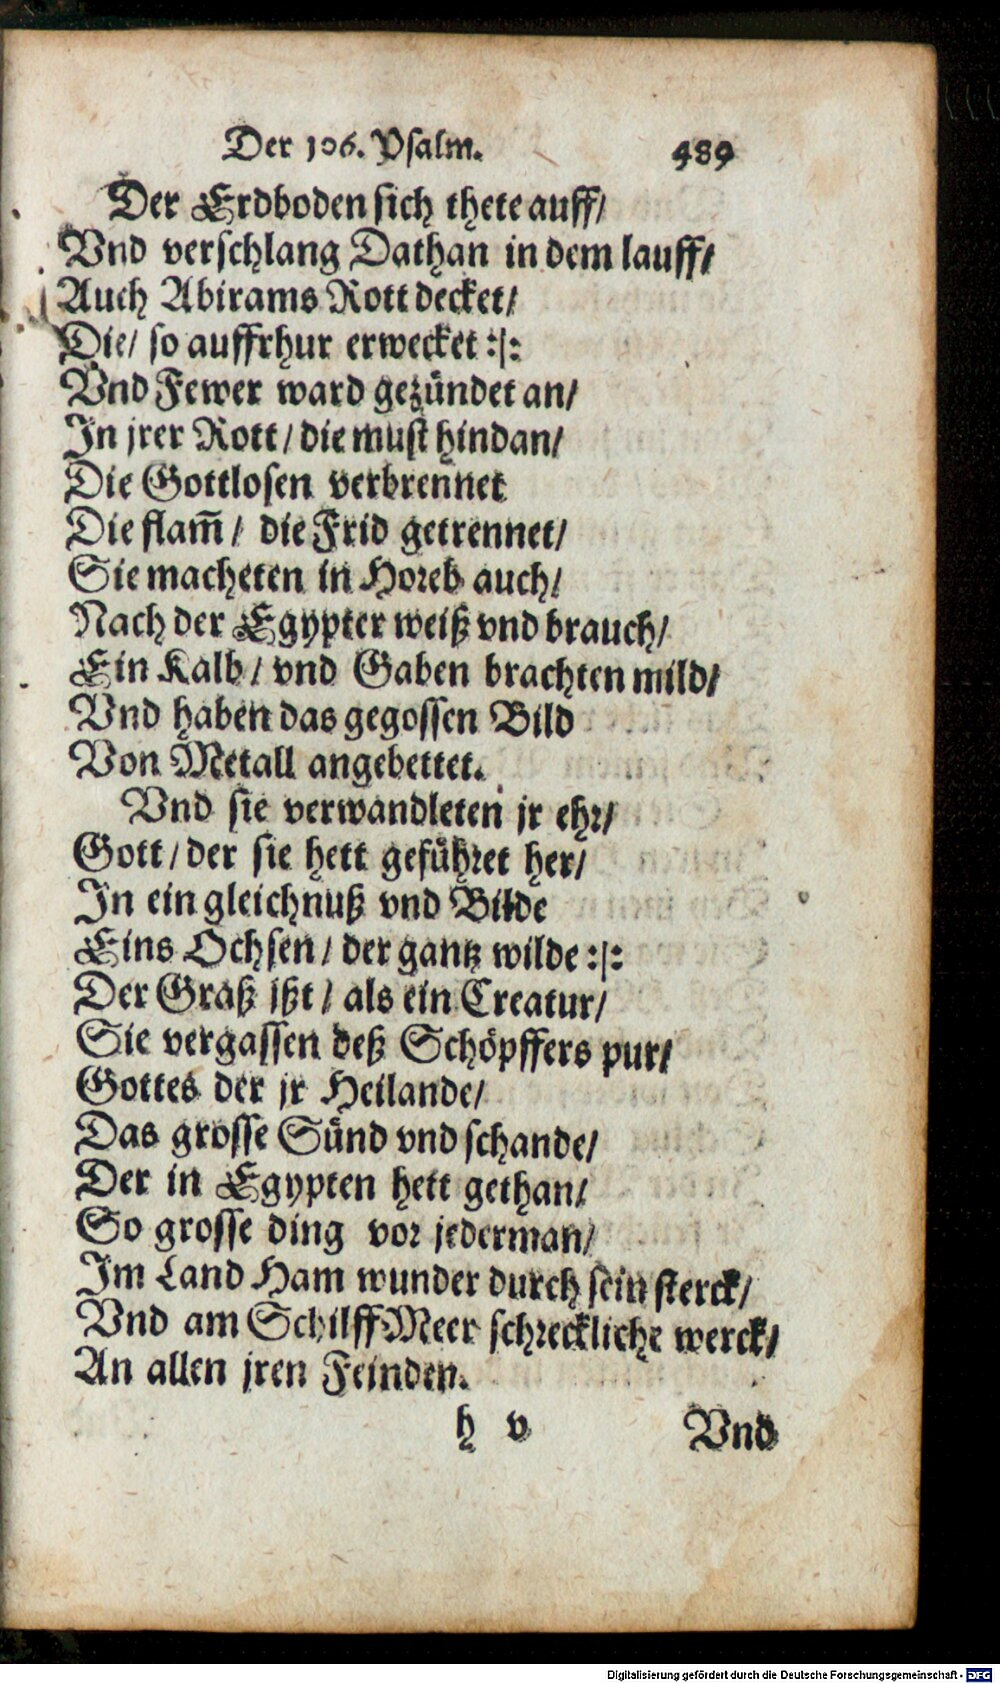 Der 106. Psalm. 489
Der Erdboden sich thete auff/
Vnd verschlang Dathan in dem lauff/
Auch Abirams Rott decket/
Die/ so auffrhur erwecket :|:
Vnd Fewer ward gezündet an/
In jrer Rott/ die must hindan/
Die Gottlosen verbrennet
Die flam̃/ die Frid getrennet/
Sie macheten in Horeb auch/
Nach der Egypter weiß vnd brauch/
Ein Kalb/ vnd Gaben brachten mild/
Vnd haben das gegossen Bild
Von Metall angebettet.
Vnd sie verwandleten jr ehr/
Gott/ der sie hett geführet her/
In ein gleichnuß vnd Bilde
Eins Ochsen/ der gantz wilde :|:
Der Graß jßt/ als ein Creatur/
Sie vergassen deß Schöpffers pur/
Gottes der jr Heilande/
Das grosse Sünd vnd schande/
Der in Egypten hett gethan/
So grosse ding vor jederman/
Im Land Ham wunder durch sein sterck/
Vnd am Schilff Meer schreckliche werck/
An allen jren Feinden.
h v Vnd
Digitalisierung gefördert durch die Deutsche Forschungsgemeinschaft - DFG